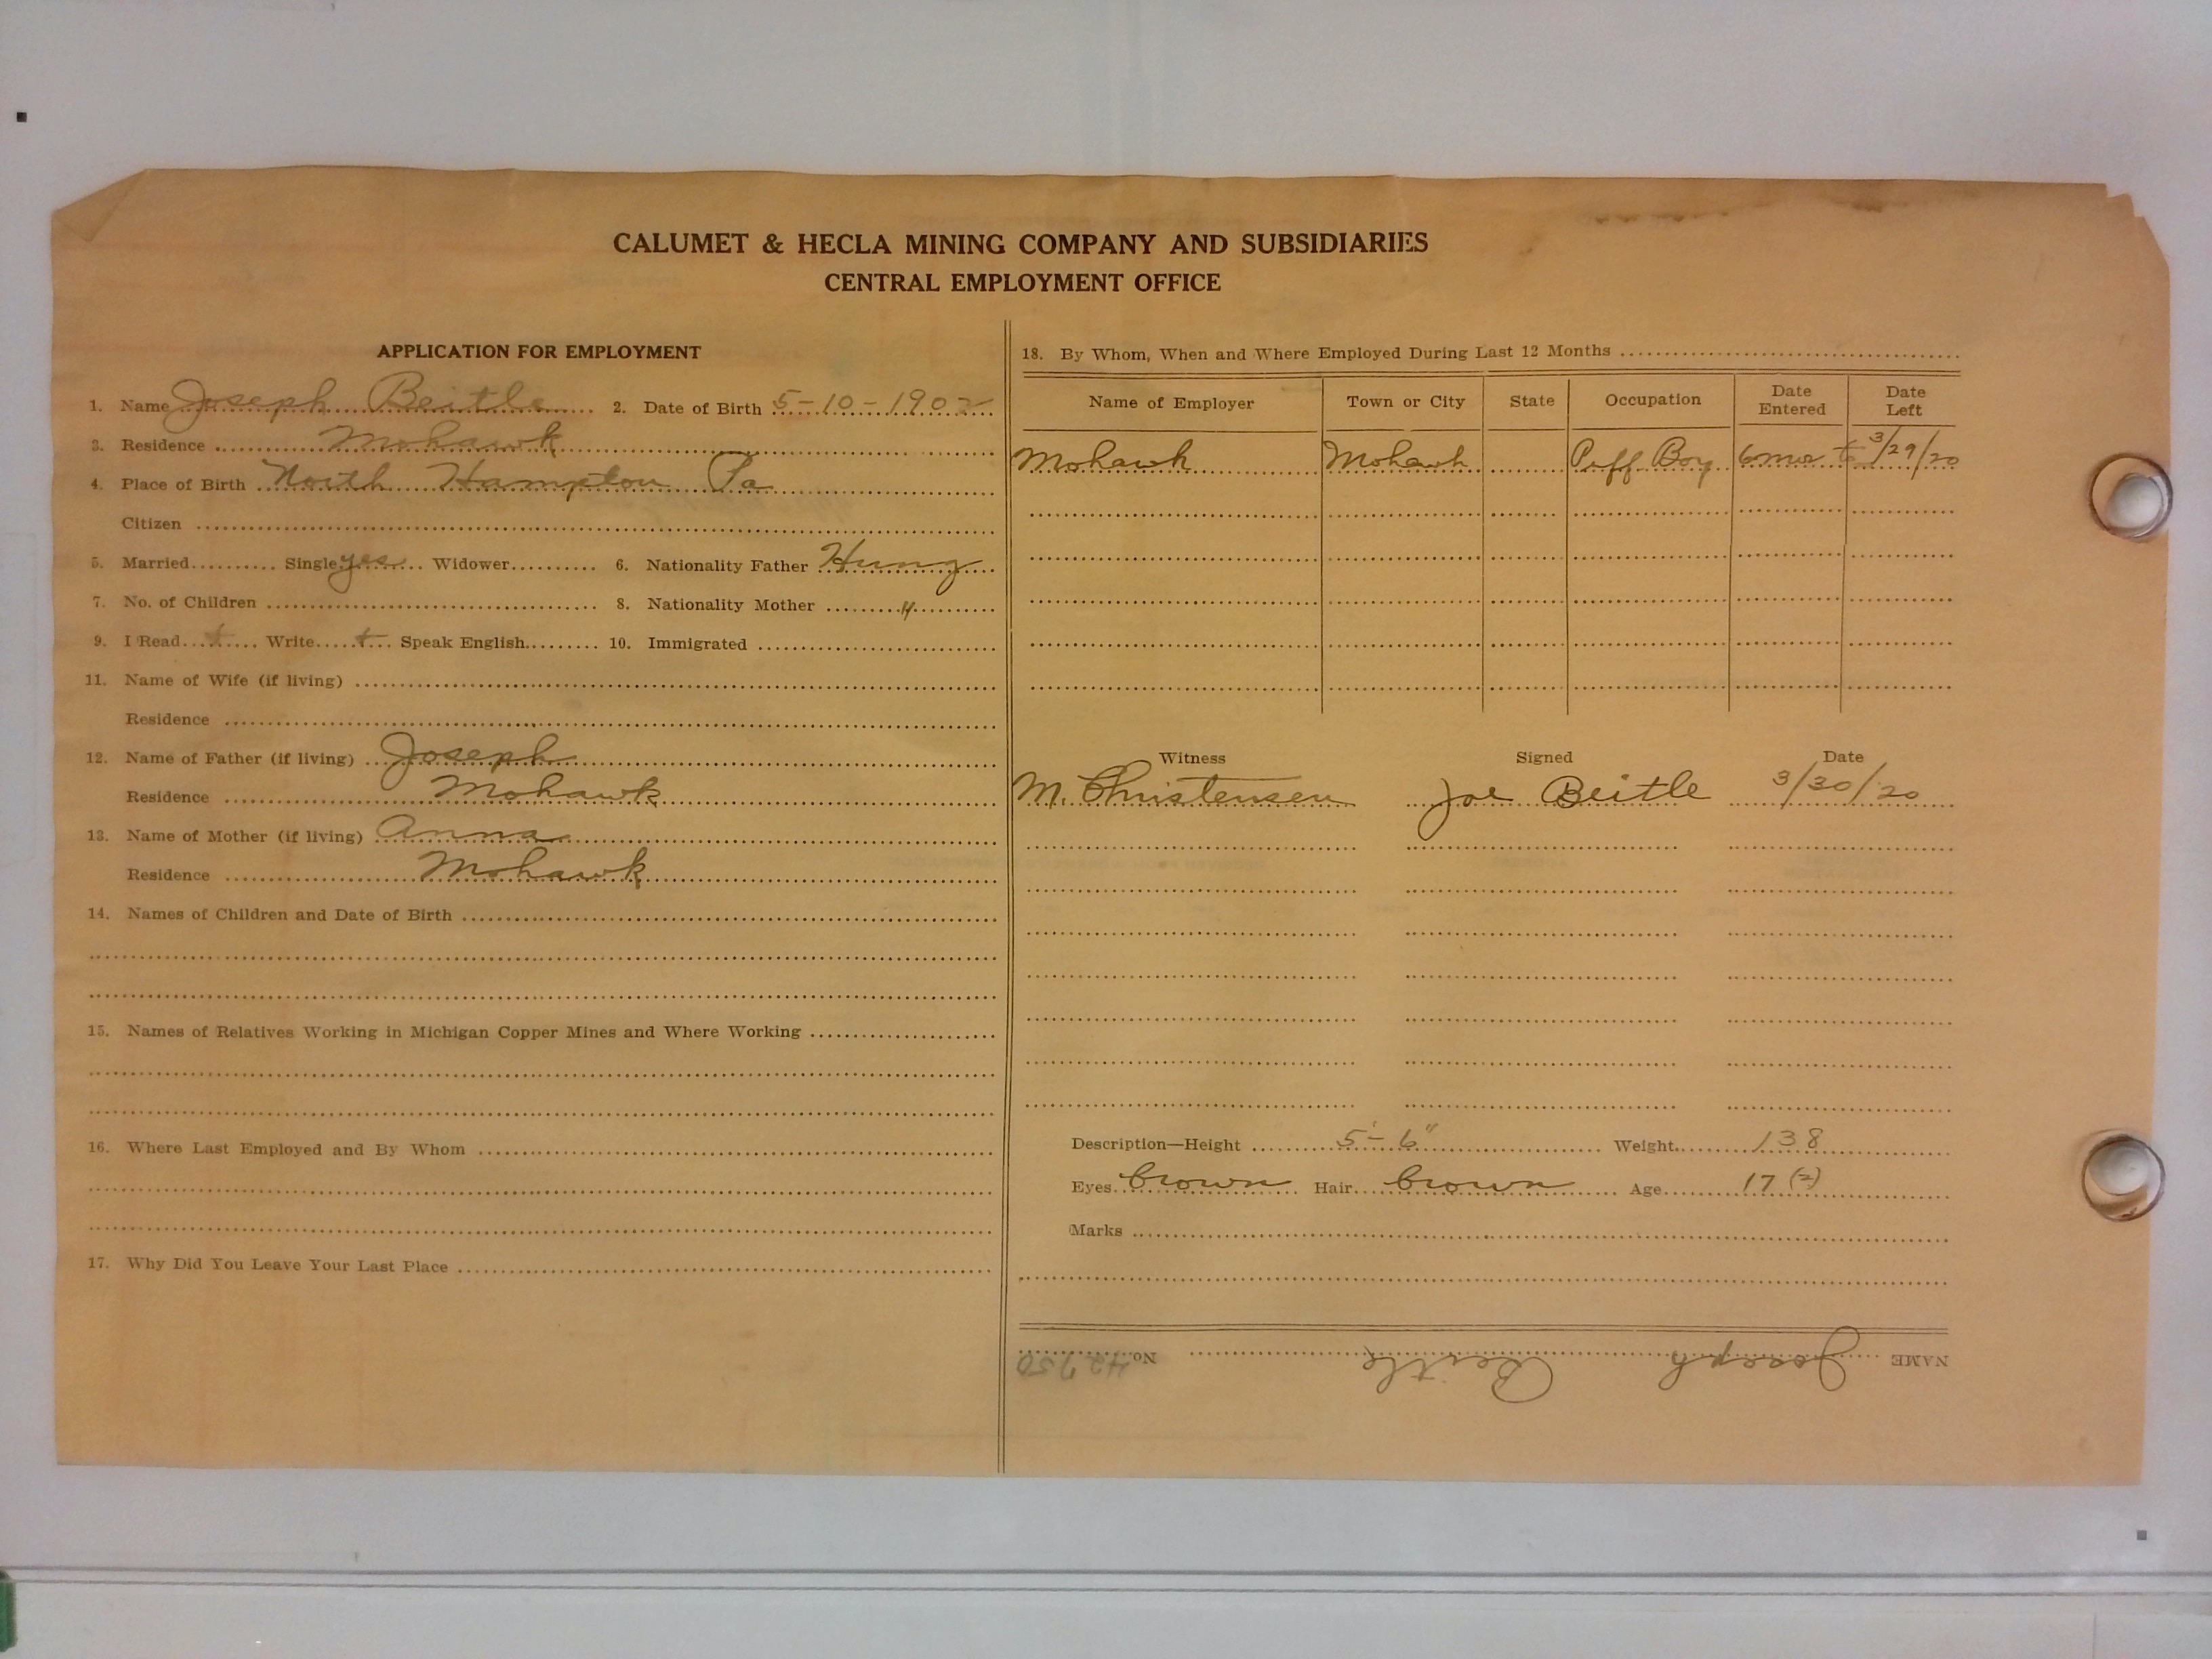 CALUMET & HECLA MINING COMPANY AND SUBSIDIARIES
CENTRAL EMPLOYMENT OFFICE
APPLICATION FOR EMPLOYMENT
1. Name Joseph Beitle 2. Date of Birth 5-10-1902
3. Residence Mohawk
4. Place of Birth North Hampton Pa
Citizen
5. Married Single yes Widower 6. Nationality Father Hung
7. No. of Children 8. Nationality Mother "
9. I Read + Write + Speak English 10. Immigrated
11. Name of Wife (if living)
Residence
12. Name of Father (if living) Joseph
Residence Mohawk
13. Name of Mother (if living) Anna
Residence Mohawk
14. Names of Children and Date of Birth
15. Names of Relatives Working in Michigan Copper Mines and Where Working
16. Where Last Employed and By Whom
17. Why Did You Leave Your Last Place
18. By Whom, When and Where Employed During Last 12 Months
Name of Employer Town or City State Occupation Date Entered Date Left
Mohawk Mohawk Puff Boy 6 mos to 3/29/20
Witness Signed Date
M. Christensen Joe Beitle 3/30/20
Description—Height 5'-6" Weight 138
Eyes brown Hair brown Age 17 (2)
Marks
NAME Joseph Beitle No. 42750